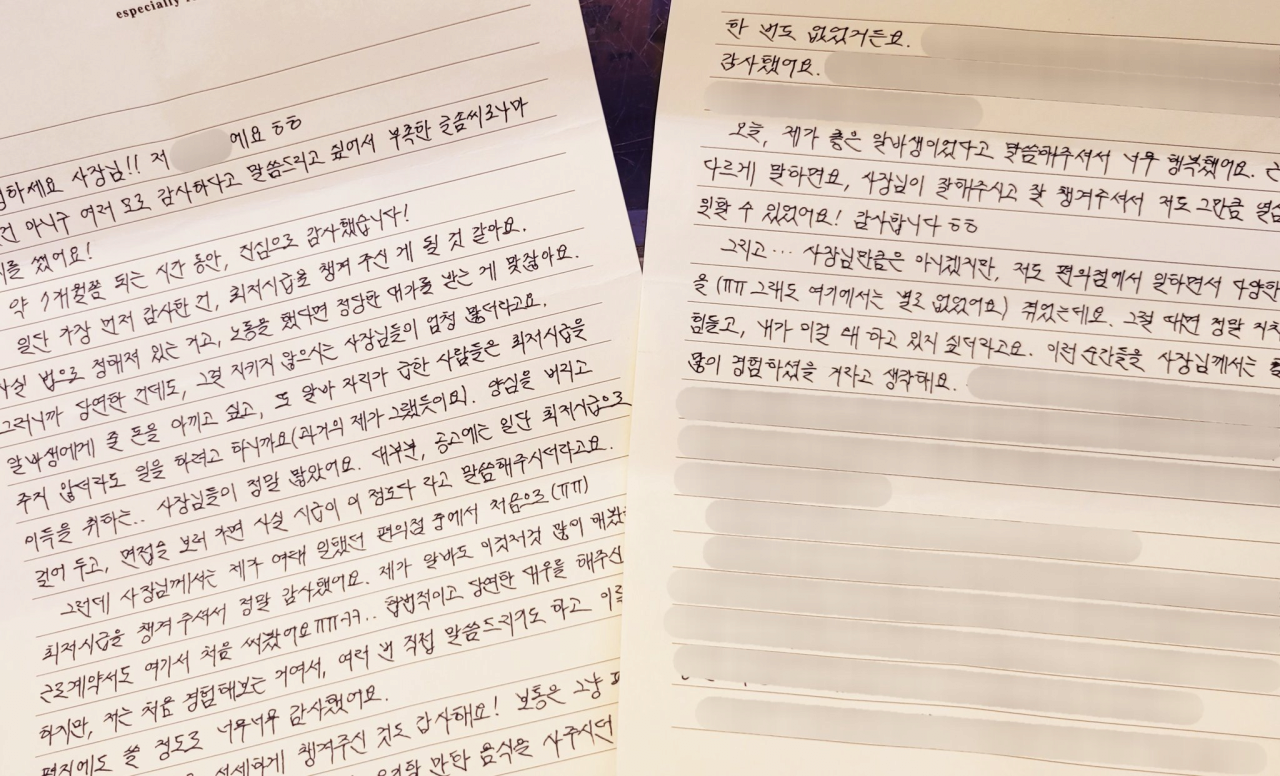 especially
하세요 사장님!! 저 에요 ㅎㅎ
건 아니구 여러 모로 감사하다고 말씀드리고 싶어서 부족한 글솜씨로나마
를 썼어요!
약 7개월쯤 되는 시간 동안, 진심으로 감사했습니다!
일단 가장 먼저 감사한 건, 최저시급을 챙겨 주신 게 될 것 같아요.
사실 법으로 정해져 있는 거고, 노동을 했다면 정당한 대가를 받는 게 맞잖아요.
그러니까 당연한 건데도, 그걸 지키지 않으시는 사장님들이 엄청 많더라고요.
알바생에게 줄 돈을 아끼고 싶고, 또 알바 자리가 급한 사람들은 최저시급을
주지 않더라도 일을 하려고 하니까요(과거의 제가 그랬듯이요). 양심을 버리고
이득을 취하는.. 사장님들이 정말 많았어요. 대부분, 공고에는 일단 최저시급으로
걸어 두고, 면접을 보러 가면 사실 시급이 이 정도다 라고 말씀해주시더라고요.
그런데 사장님께서는 제가 여태 일했던 편의점 중에서 처음으로(ㅠㅠ)
최저시급을 챙겨 주셔서 정말 감사했어요. 제가 알바도 이것저것 많이 해봤
근로계약서도 여기서 처음 써봤어요ㅠㅠㅋㅋ.. 합법적이고 당연한 대우를 해주신
하지만, 저는 처음 경험해보는 거여서, 여러 번 직접 말씀드리기도 하고 이
편지에도 쓸 정도로 너무너무 감사했어요.
섬세하게 챙겨주신 것도 감사해요! 보통은 그냥
만한 음식을 사주시던
한 번도 없었거든요.
감사했어요.
오늘, 제가 좋은 알바생이었다고 말씀해주셔서 너무 행복했어요.
다르게 말하면요, 사장님이 잘해주시고 잘 챙겨주셔서 저도 그만큼 열심
일할 수 있었어요! 감사합니다 ㅎㅎ
그리고... 사장님만큼은 아니겠지만, 저도 편의점에서 일하면서 다양한
을 (ㅠㅠ 그래도 여기에서는 별로 없었어요) 겪었는데요. 그럴 때면 정말 지
힘들고, 내가 이걸 왜 하고 있지 싶더라고요. 이런 순간들을 사장님께서는
많이 경험하셨을 거라고 생각해요.